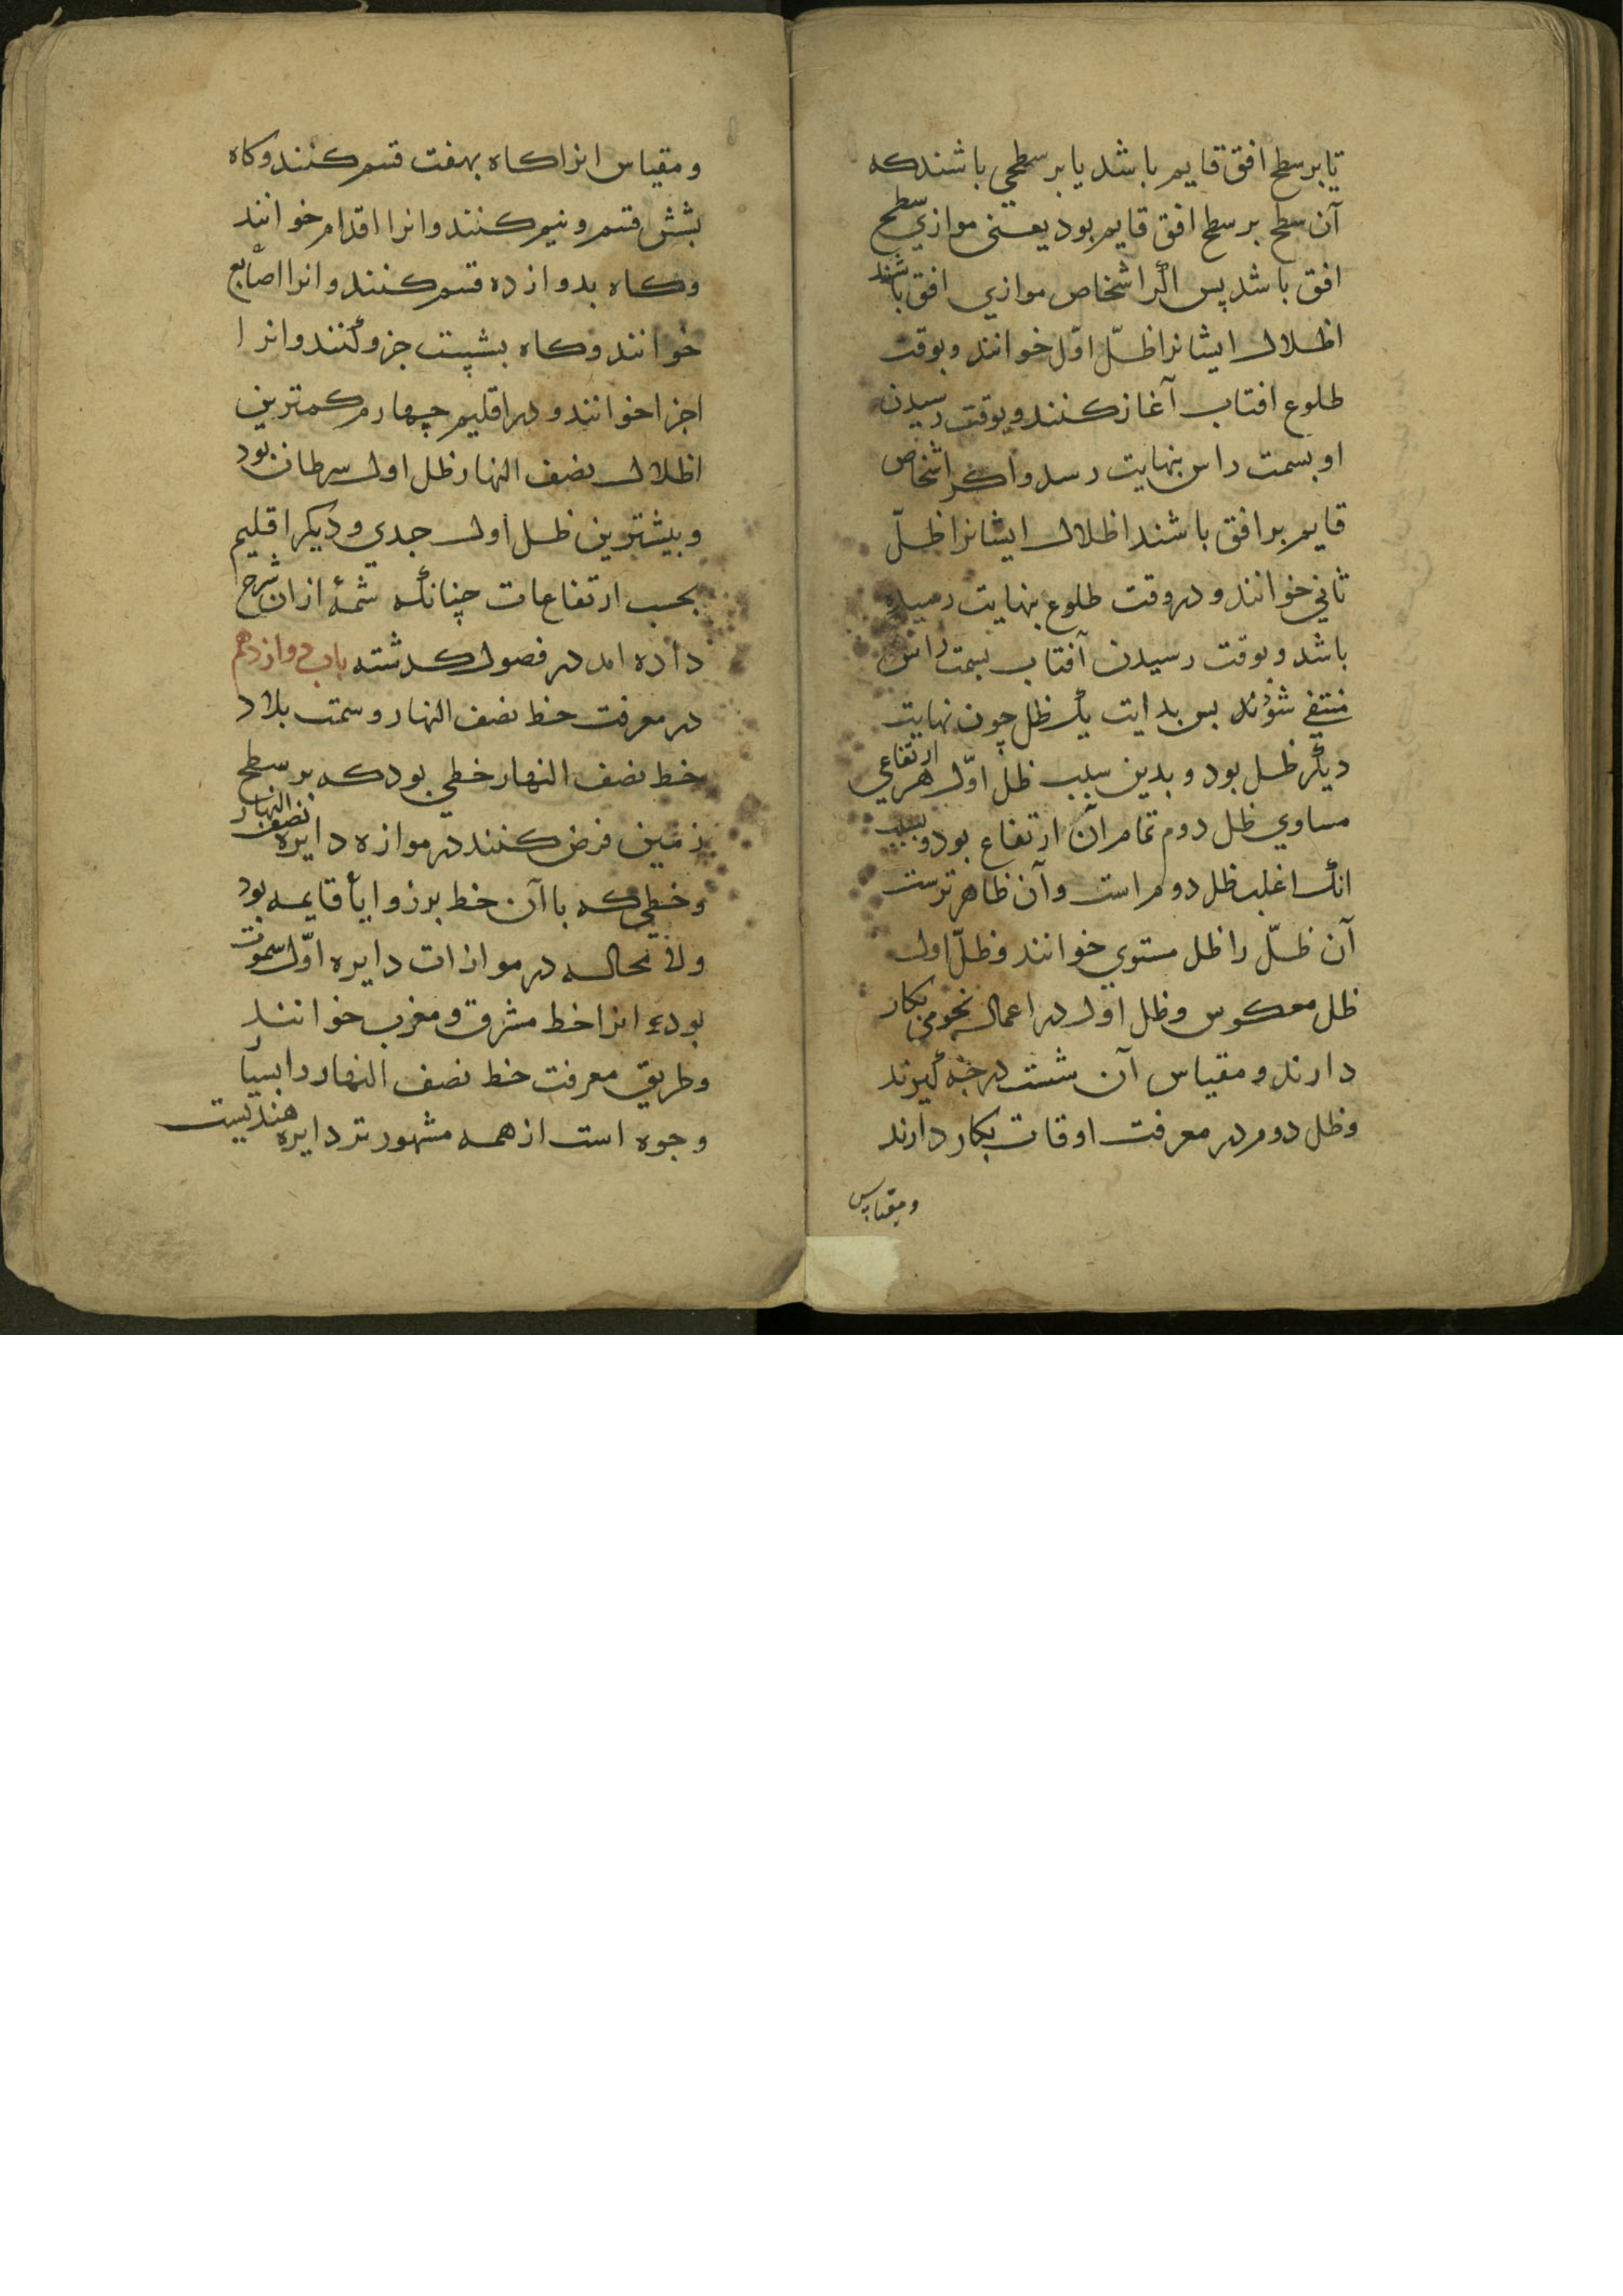 تا بر سطح افق قایم باشد یا بر سطحی باشند که
آن سطح بر سطح افق قایم بود یعنی موازی سطح
افق باشد پس اگر اشخاص موازی افق باشند
اظلال ایشانرا ظلّ اوّل خوانند و بوقت
طلوع افتاب آغاز کنند و بوقت رسیدن
او بسمت راس بنهایت رسد و اکر اشخاص
قایم بر افق باشند اظلال ایشانرا ظلّ
ثانی خوانند و در وقت طلوع بنهایت رسیده
باشد و بوقت رسیدن آفتاب بسمت راس
منتفی شوند بس بدایت یک ظل چون نهایت
دیگر ظل بود و بدین سبب ظل اوّل هر ارتفاعی
مساوی ظل دوم تمام آن ارتفاع بود و بسبب
انک اغلب ظل دوم راست و آن ظاهرترست
آن ظلّ را ظل مستوی خوانند و ظلّ اول
ظل معکوس و ظل اول در اعمال نجومی بکار
دارند و مقیاس آن شست درجه گیرند
و ظل دوم در معرفت اوقات بکار دارند
و مقیاس
و مقیاس انرا کاه بهفت قسم کنند و کاه
بشش قسم و نیم کنند و انرا اقدام خوانند
و کاه بدوازده قسم کنند و انرا اصابع
خوانند و کاه بشیست جزو کنند و انرا
اجزا خوانند و در اقلیم چهارم کمترین
اظلال نصف النهار ظل اول سرطان بود
و بیشترین ظل اول جدی و دیکر اقلیم
بحسب ارتفاعات چنانک شمهٔ ازان شرح
داده امد در فصول کدشته باب دوازدهم
در معرفت خط نصف النهار و سمت بلاد
خط نصف النهار خطی بود که بر سطح
زمین فرض کنند در موازه دایره نصف النهار
و خطی که با آن خط بر زوایأ قایمه بود
ولا محاله در موازات دایره اوّل سموت
بود انرا خط مشرق و مغرب خوانند
و طریق معرفت خط نصف النهار را بسیار
وجوه است از همه مشهورتر دایره هندیست